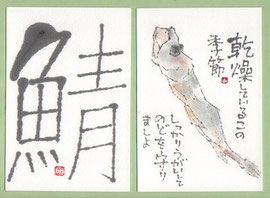 鯖
乾燥しているこの
季節
しっかりうがいして
のどを守り
ましょ